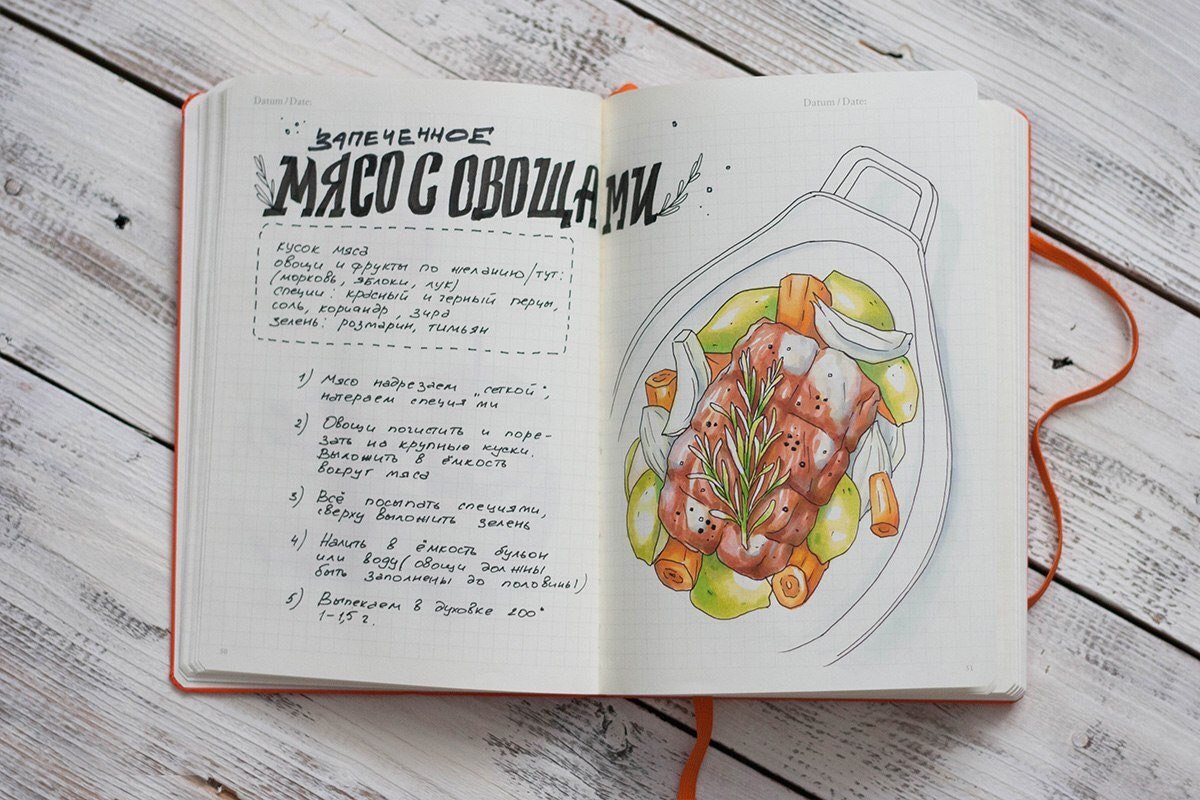 Datum / Date:
Datum / Date:
ЗАПЕЧЕННОЕ
МЯСО С ОВОЩАМИ
кусок мяса
овощи и фрукты по желанию/тут:
(морковь, яблоки, лук)
специи: красный и черный перцы,
соль, кориандр, зира
зелень: розмарин, тимьян
1) Мясо надрезаем „сеткой“,
натераем специями
2) Овощи почистить и поре-
зать на крупные куски.
Выложить в ёмкость
вокруг мяса
3) Всё посыпать специями,
сверху выложить зелень
4) Налить в ёмкость бульон
или воду (овощи должны
быть заполнены до половины!)
5) Выпекаем в духовке 200°
1-1,5 ч.
50
51